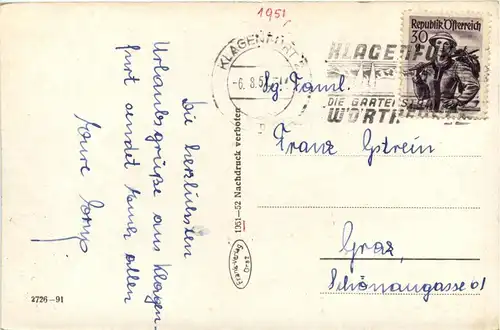 1951
KLAGENFURT 2
-6. 8. 5
Republik Österreich
30
KLAGENFU
DIE GARTENS
WÖRTH
Die herzlichsten
Urlaubsgrüße aus Klagen-
furt sendet Euch allen
Eure
Sg. Faml.
Franz Gstrein
Graz,
Schönaugasse 61
1351-52 Nachdruck verboten
2726-91